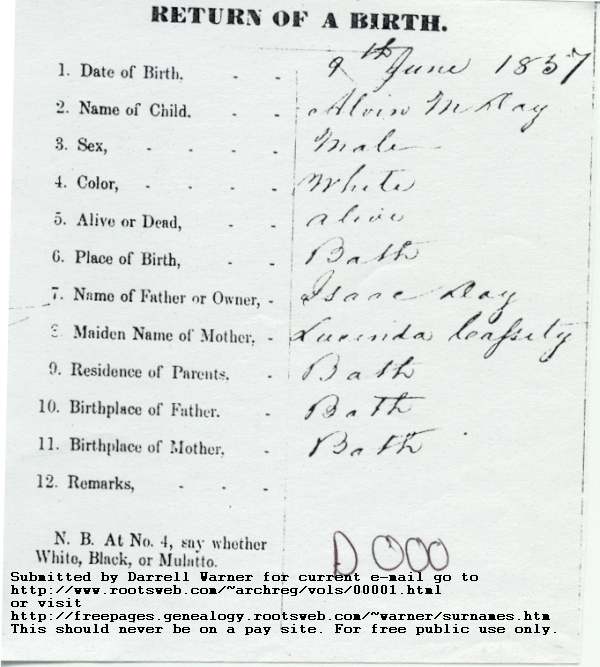 RETURN OF A BIRTH.
1. Date of Birth. - - 9th June 1857
2. Name of Child. - - Alvin M Day
3. Sex, - - - - Male
4. Color, - - - - White
5. Alive or Dead, - - alive
6. Place of Birth, - - Bath
7. Name of Father or Owner, - Isaac Day
8. Maiden Name of Mother, - Lucinda Cassity
9. Residence of Parents. - Bath
10. Birthplace of Father. - Bath
11. Birthplace of Mother, - Bath
12. Remarks, - - -
N. B. At No. 4, say whether
White, Black, or Mulatto.
D 000
Submitted by Darrell Warner for current e-mail go to
http://www.rootsweb.com/~archreg/vols/00001.html
or visit
http://freepages.genealogy.rootsweb.com/~warner/surnames.htm
This should never be on a pay site. For free public use only.